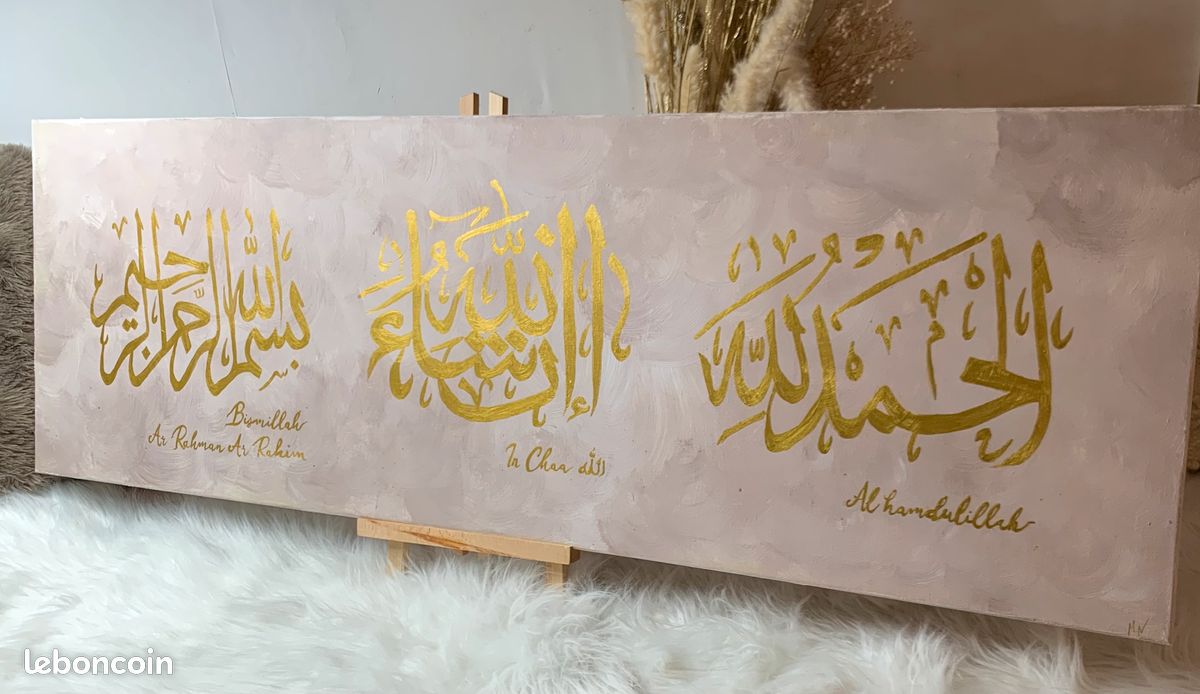 بسم الله الرحمن الرحيم
Bismillah
Ar Rahman Ar Rahim
إن شاء الله
In Chaa الله
الحمد لله
Al hamdulillah
MN
leboncoin